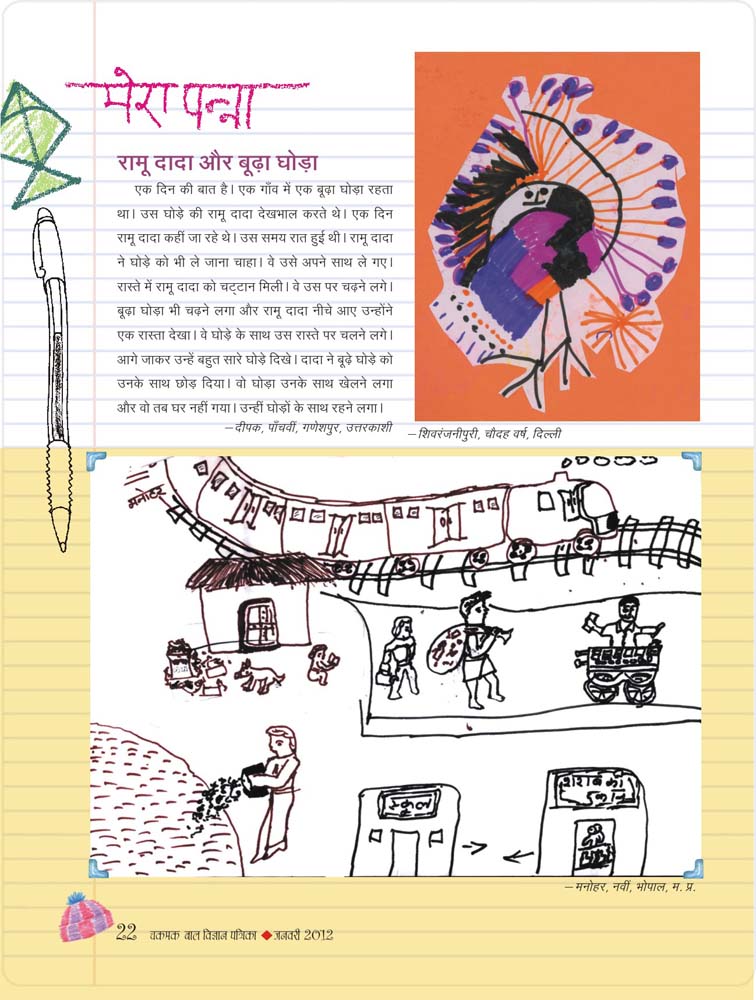 मेरा पन्ना
रामू दादा और बूढ़ा घोड़ा
एक दिन की बात है। एक गाँव में एक बूढ़ा घोड़ा रहता
था। उस घोड़े की रामू दादा देखभाल करते थे। एक दिन
रामू दादा कहीं जा रहे थे। उस समय रात हुई थी। रामू दादा
ने घोड़े को भी ले जाना चाहा। वे उसे अपने साथ ले गए।
रास्ते में रामू दादा को चट्टान मिली। वे उस पर चढ़ने लगे।
बूढ़ा घोड़ा भी चढ़ने लगा और रामू दादा नीचे आए उन्होंने
एक रास्ता देखा। वे घोड़े के साथ उस रास्ते पर चलने लगे।
आगे जाकर उन्हें बहुत सारे घोड़े दिखे। दादा ने बूढ़े घोड़े को
उनके साथ छोड़ दिया। वो घोड़ा उनके साथ खेलने लगा
और वो तब घर नहीं गया। उन्हीं घोड़ों के साथ रहने लगा।
—दीपक, पाँचवीं, गणेशपुर, उत्तरकाशी
—शिवरंजनीपुरी, चौदह वर्ष, दिल्ली
मनोहर
स्कूल
शराब की
दुकान
—मनोहर, नवीं, भोपाल, म. प्र.
22 चकमक बाल विज्ञान पत्रिका ◆ जनवरी 2012